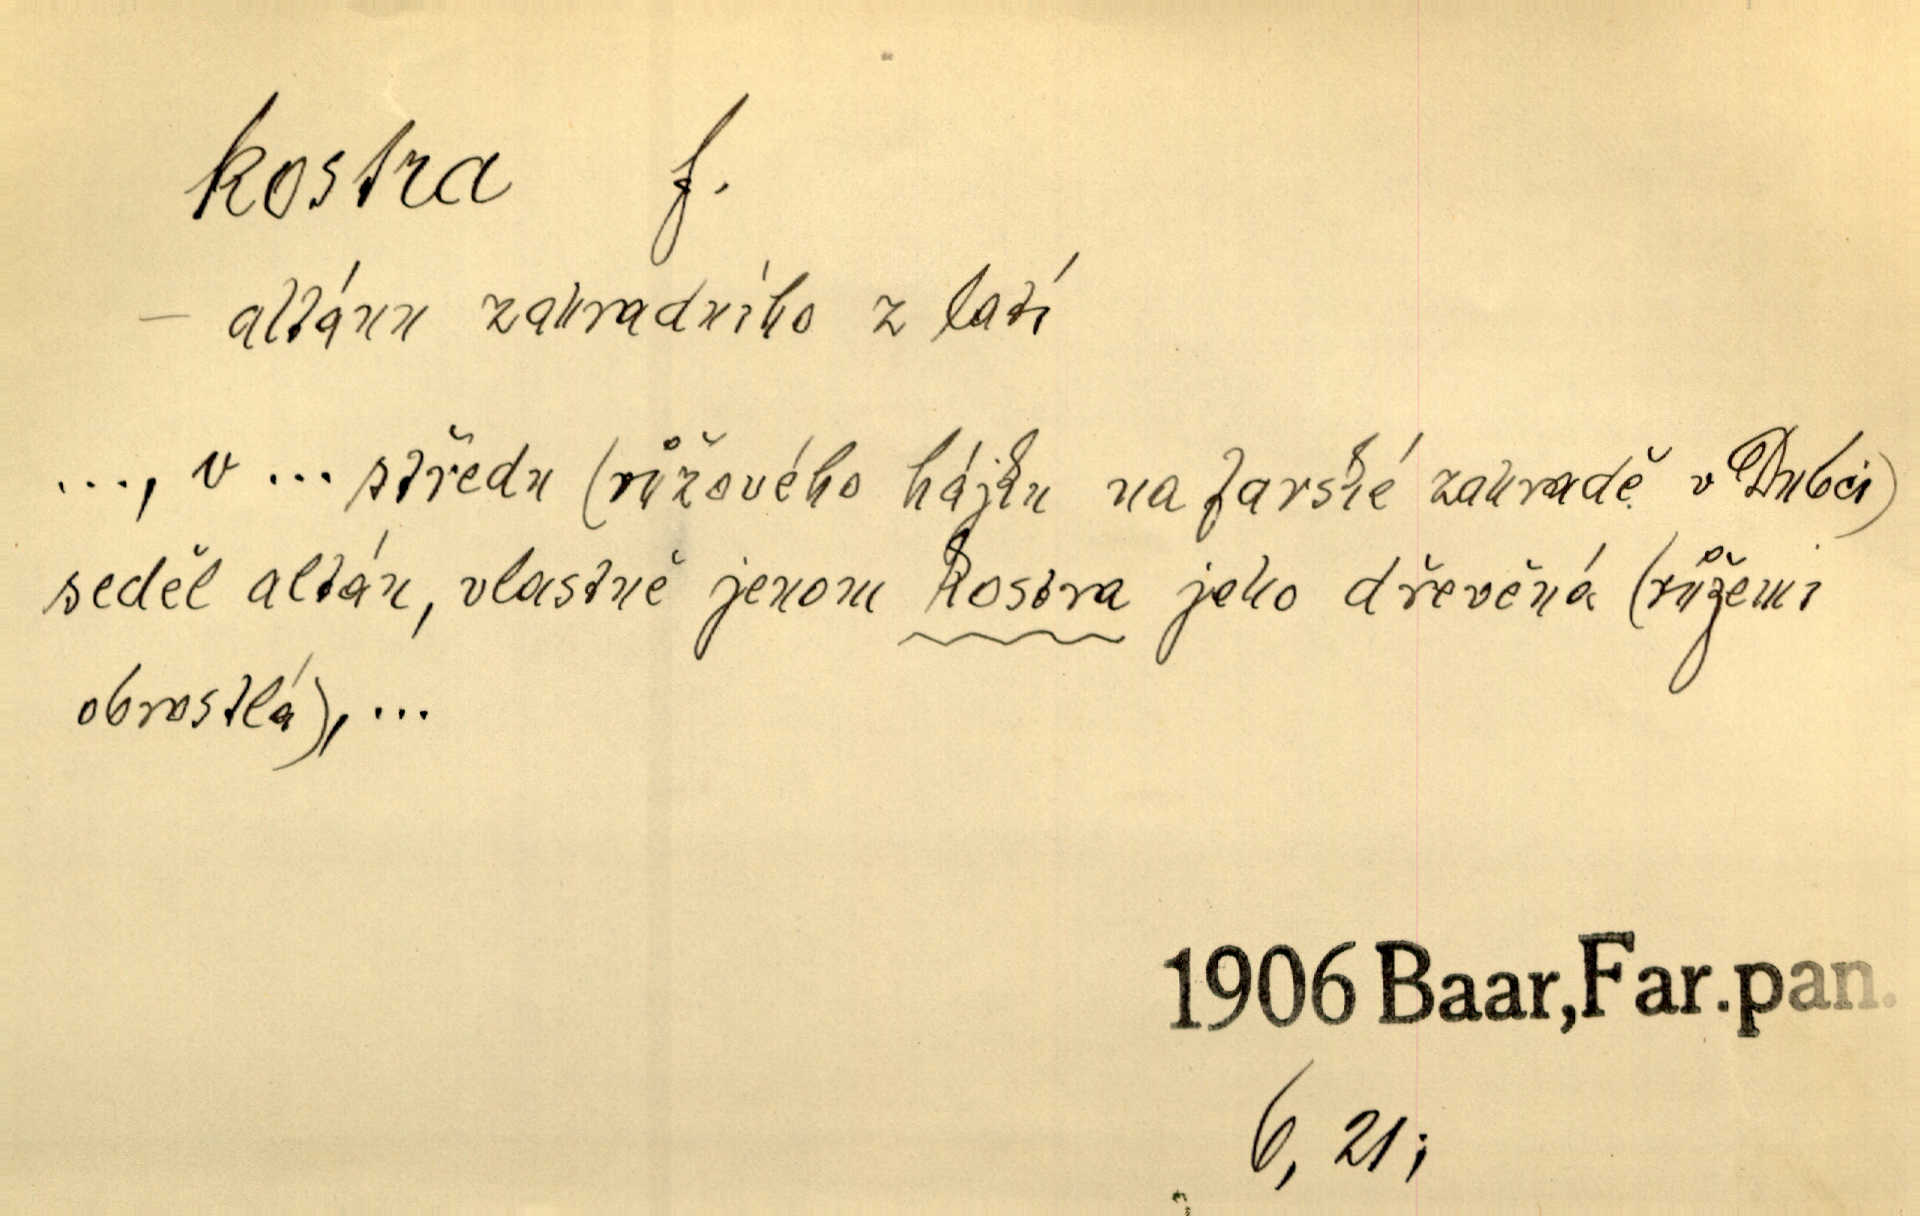 kostra f.
– altánu zahradního z latí
..., v ... středu (růžového hájku na farské zahradě v Dubci)
seděl altán, vlastně jenom kostra jeho dřevěná (růžemi
obrostlá), ...
1906 Baar, Far. pan.
6, 21;